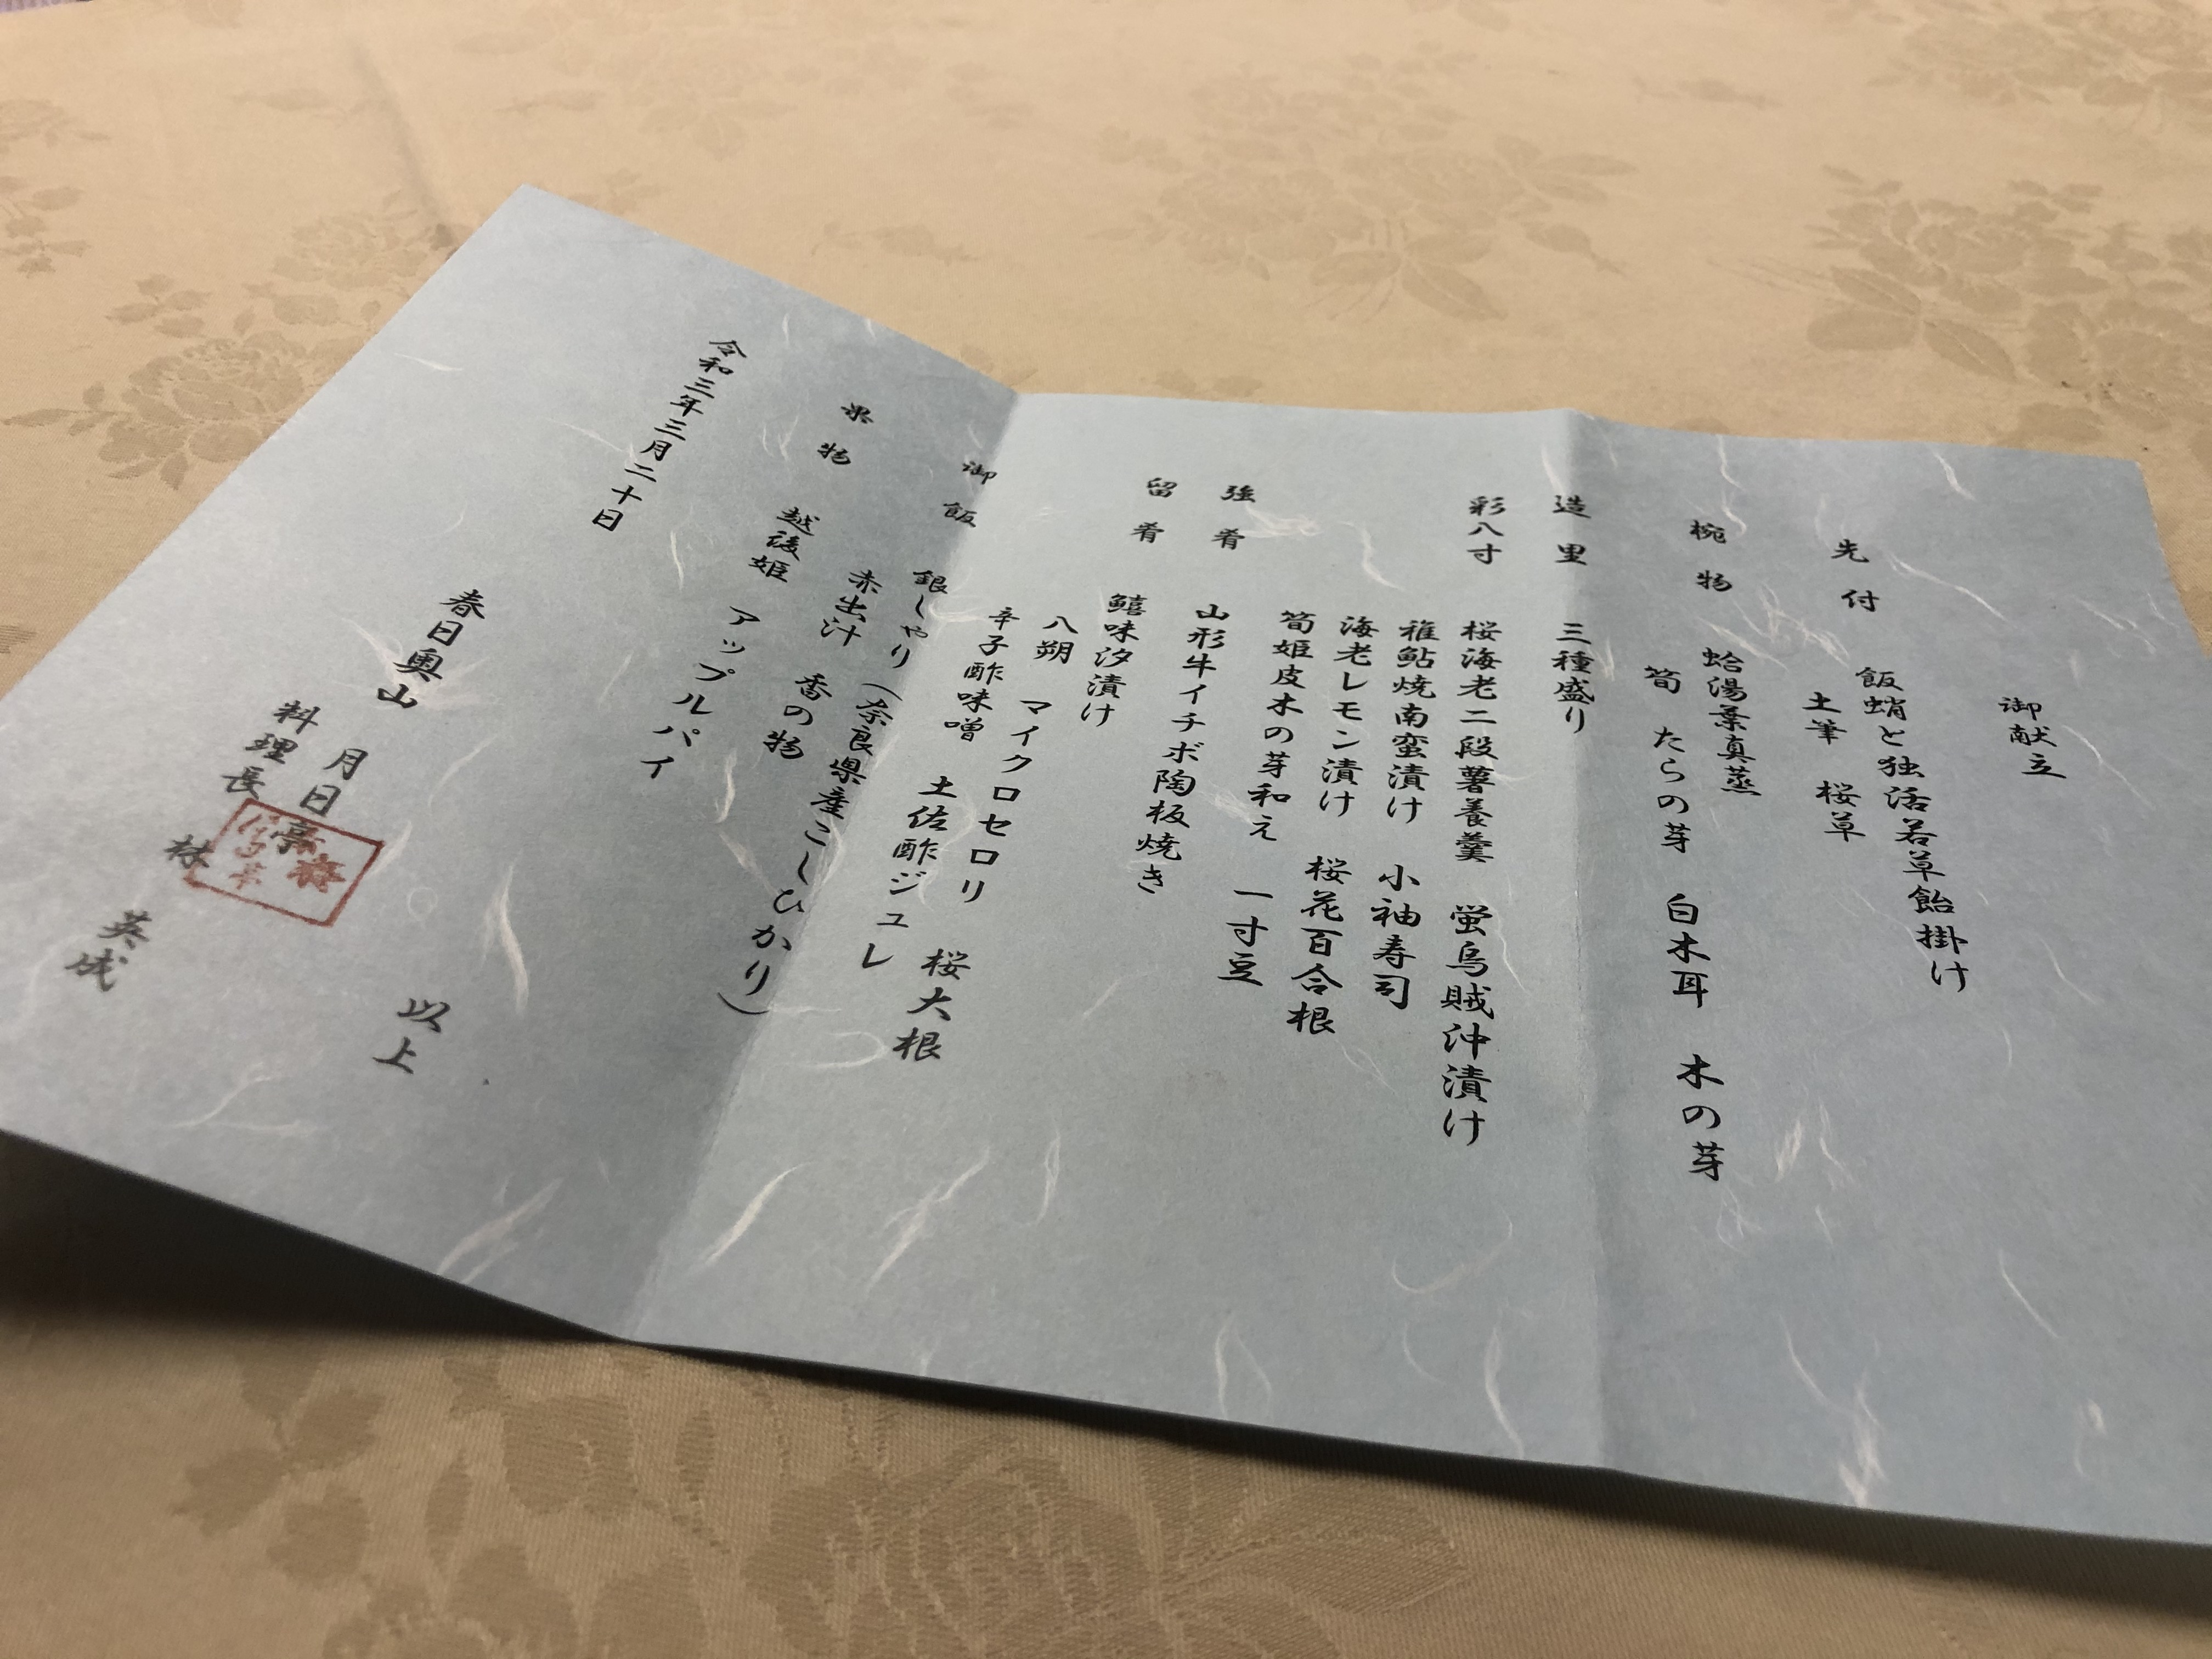 御献立
先付
飯蛸と独活若草飴掛け
土筆 桜草
椀物
蛤湯葉真蒸
筍 たらの芽 白木耳 木の芽
造里 三種盛り
彩八寸 桜海老二段薯養羹 蛍烏賊沖漬け
稚鮎焼南蛮漬け 小袖寿司
海老レモン漬け 桜花百合根
筍姫皮木の芽和え 一寸豆
強肴 山形牛イチボ陶板焼き
留肴 鱚味汐漬け
八朔 マイクロセロリ 桜大根
辛子酢味噌 土佐酢ジュレ
御飯 銀しゃり(奈良県産こしひかり)
赤出汁 香の物
果物 越後姫 アップルパイ
以上
令和三年三月二十日
春日奥山 月日亭
料理長 林 英成